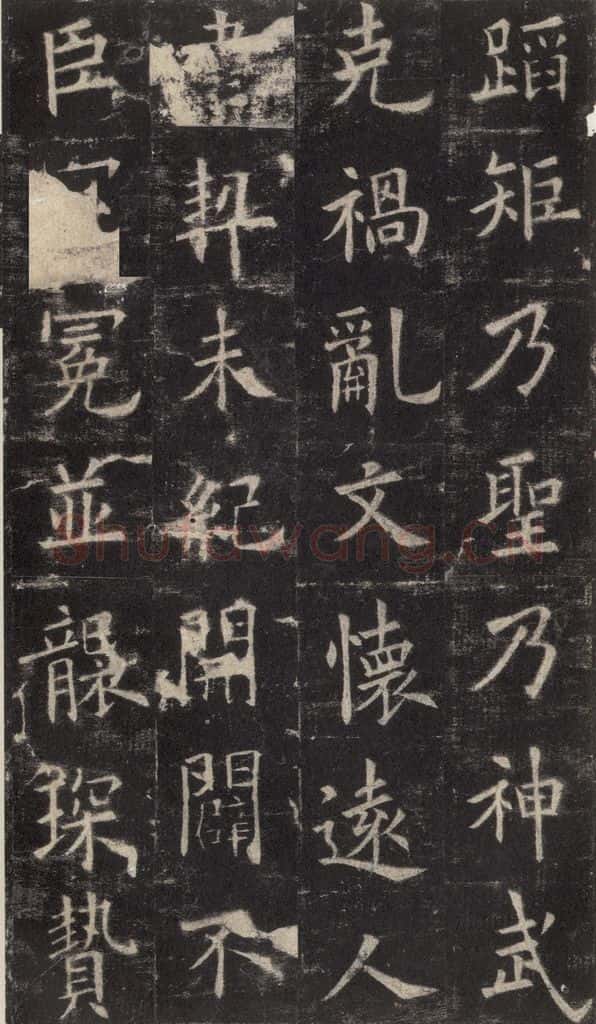 蹈矩乃聖乃神武
克禍亂文懷遠人
契未紀開闢不
臣冕並襲琛贄
Shufawang.cn